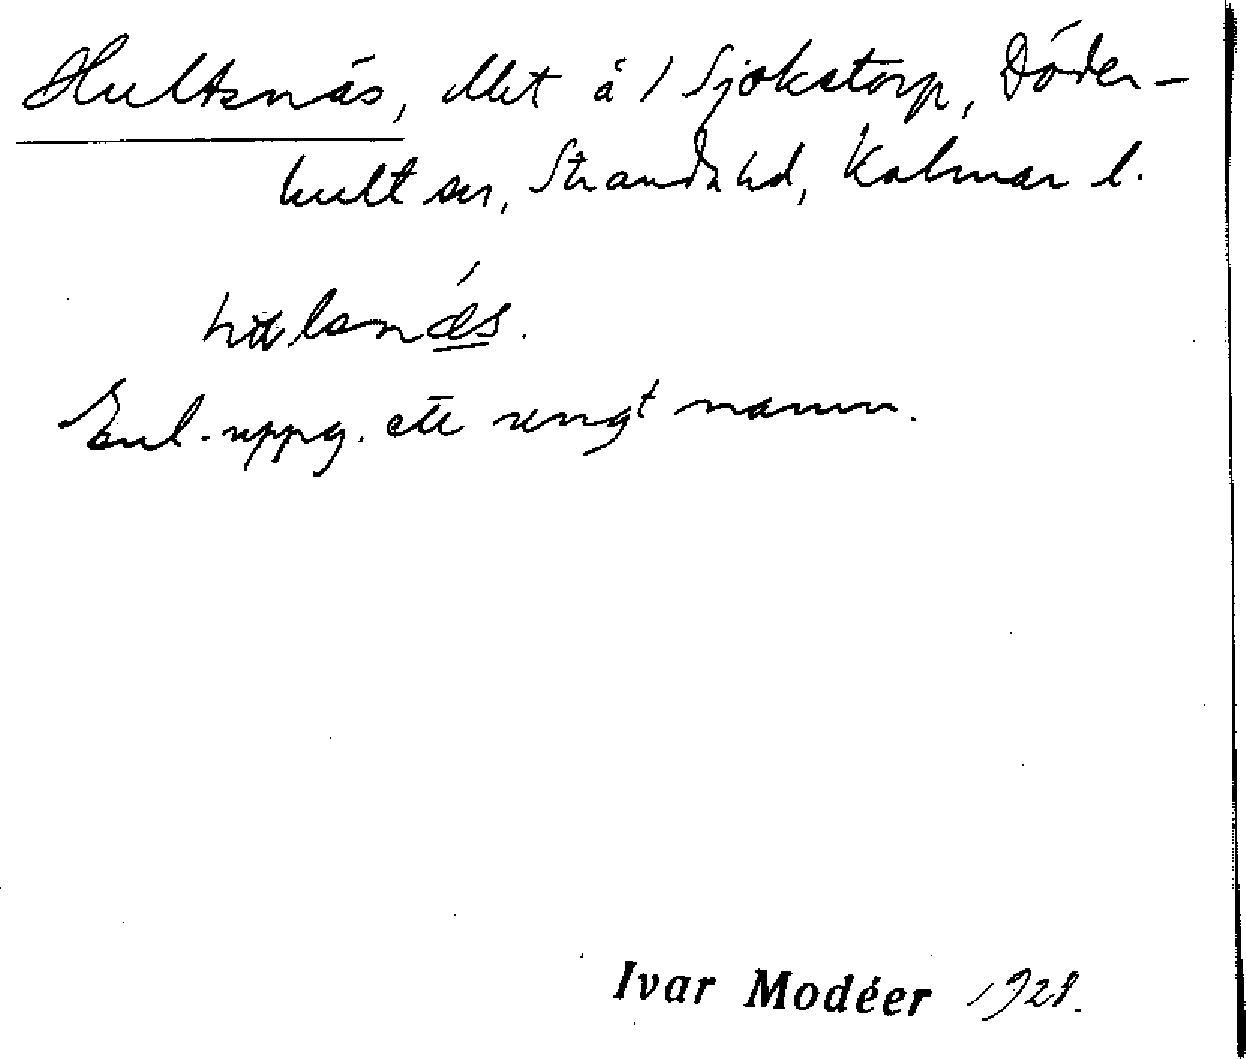 Hultsnäs, lht å 1 Sjökstorp, Döder-
hult sn, Stranda hd, Kalmar l.
hulsnæ´s.
Enl. uppg. ett rengt namn.
Ivar Modéer 1928.